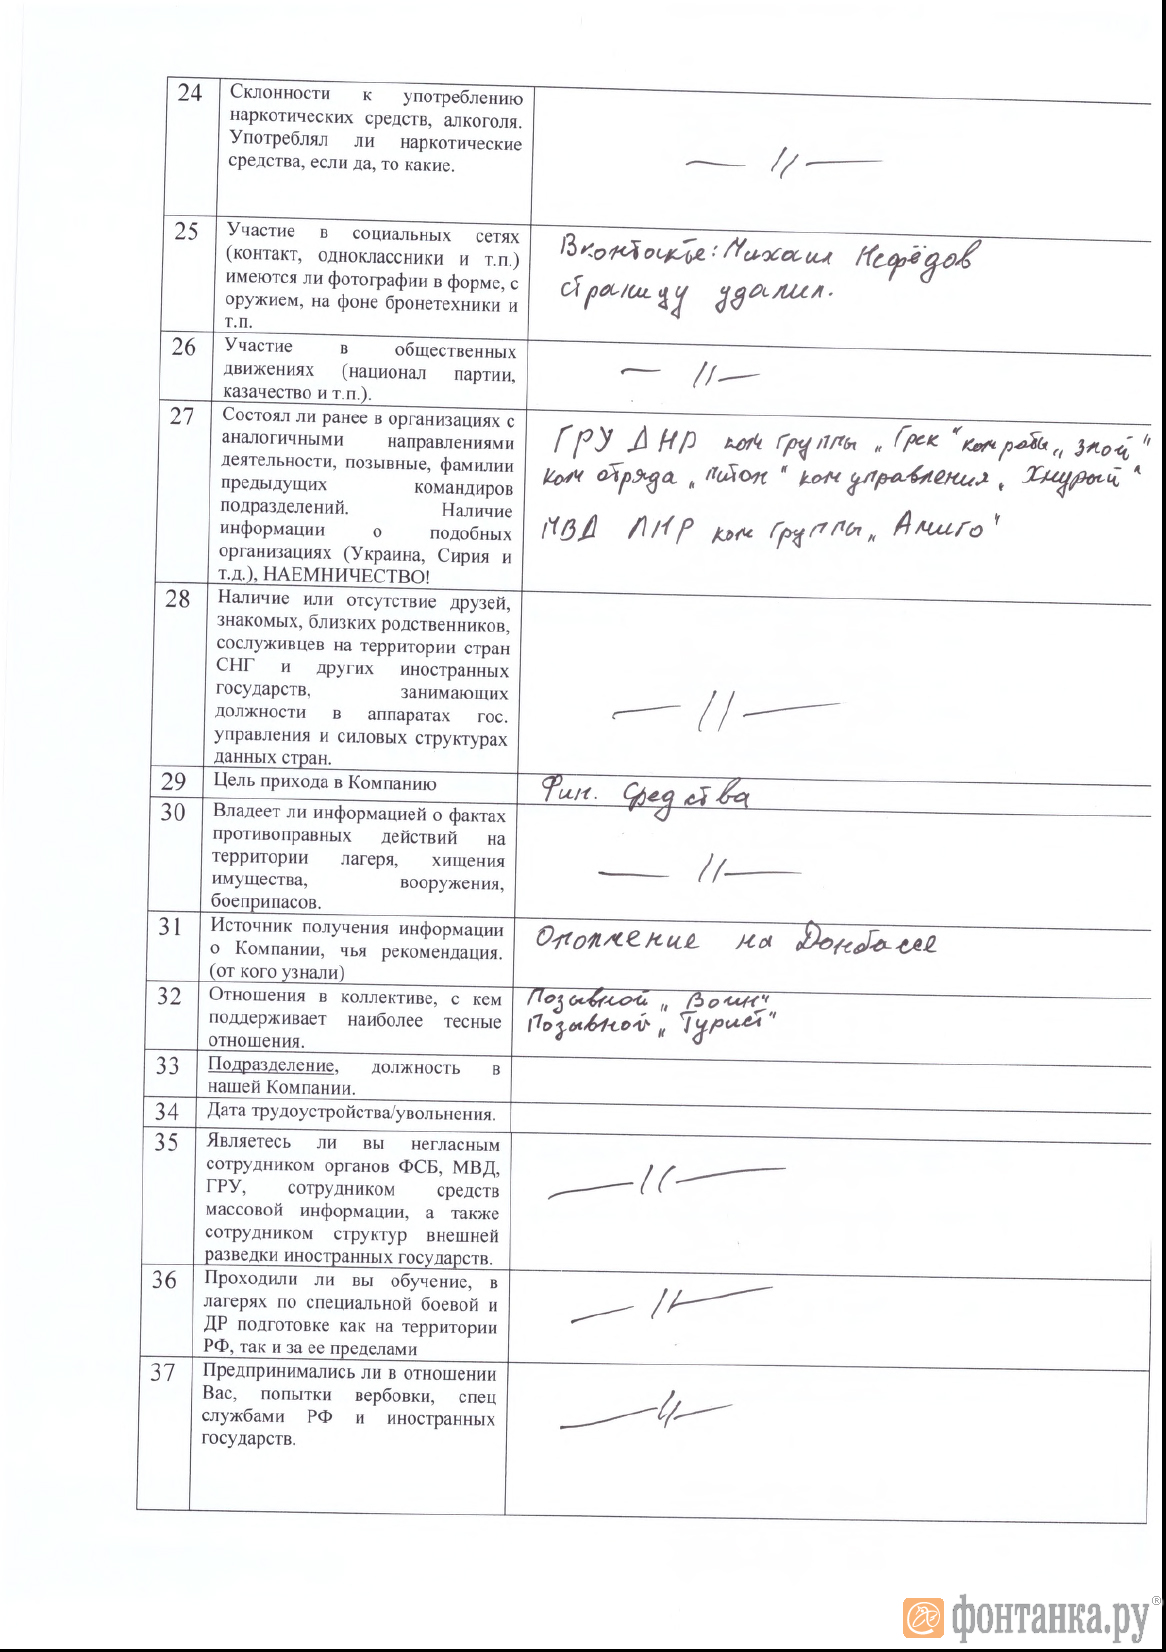 24
Склонности к употреблению
наркотических средств, алкоголя.
Употреблял ли наркотические
средства, если да, то какие.
— // —
25
Участие в социальных сетях
(контакт, одноклассники и т.п.)
имеются ли фотографии в форме, с
оружием, на фоне бронетехники и
т.п.
Вконтакте: Михаил Нефёдов
страницу удалил.
26
Участие в общественных
движениях (национал партии,
казачество и т.п.).
— // —
27
Состоял ли ранее в организациях с
аналогичными направлениями
деятельности, позывные, фамилии
предыдущих командиров
подразделений. Наличие
информации о подобных
организациях (Украина, Сирия и
т.д.), НАЕМНИЧЕСТВО!
ГРУ ДНР ком группы „Грек" ком роты „Зной"
ком отряда „Питон" ком управления „Хмурый"
МВД ЛНР ком группы „Амиго"
28
Наличие или отсутствие друзей,
знакомых, близких родственников,
сослуживцев на территории стран
СНГ и других иностранных
государств, занимающих
должности в аппаратах гос.
управления и силовых структурах
данных стран.
— // —
29
Цель прихода в Компанию
Фин. средства
30
Владеет ли информацией о фактах
противоправных действий на
территории лагеря, хищения
имущества, вооружения,
боеприпасов.
— // —
31
Источник получения информации
о Компании, чья рекомендация.
(от кого узнали)
Ополчение на Донбассе
32
Отношения в коллективе, с кем
поддерживает наиболее тесные
отношения.
Позывной „Воин"
Позывной „Турист"
33
Подразделение, должность в
нашей Компании.
34
Дата трудоустройства/увольнения.
35
Являетесь ли вы негласным
сотрудником органов ФСБ, МВД,
ГРУ, сотрудником средств
массовой информации, а также
сотрудником структур внешней
разведки иностранных государств.
— // —
36
Проходили ли вы обучение, в
лагерях по специальной боевой и
ДР подготовке как на территории
РФ, так и за ее пределами
— // —
37
Предпринимались ли в отношении
Вас, попытки вербовки, спец
службами РФ и иностранных
государств.
— // —
фонтанка.ру®